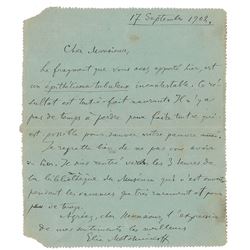 17 Septembre 1902.
Cher Monsieur,
Le fragment que vous avez apporté hier, est
un épithélioma tubulaire incontestable. Ce ré-
sultat est tout-à-fait navrant. Il n'y a
pas de temps à perdre, pour faire tout ce qui
est possible pour sauver notre pauvre
Je regrette bien de ne pas vous avoir
vu hier. Je suis resté vers les 3 heures de
la bibliothèque du Muséum qui n'est ouverte
pendant les vacances que très rarement et pour
peu de temps.
Agréez, cher Monsieur, l'expression
de mes sentiments les meilleurs
Élie Metchnikoff